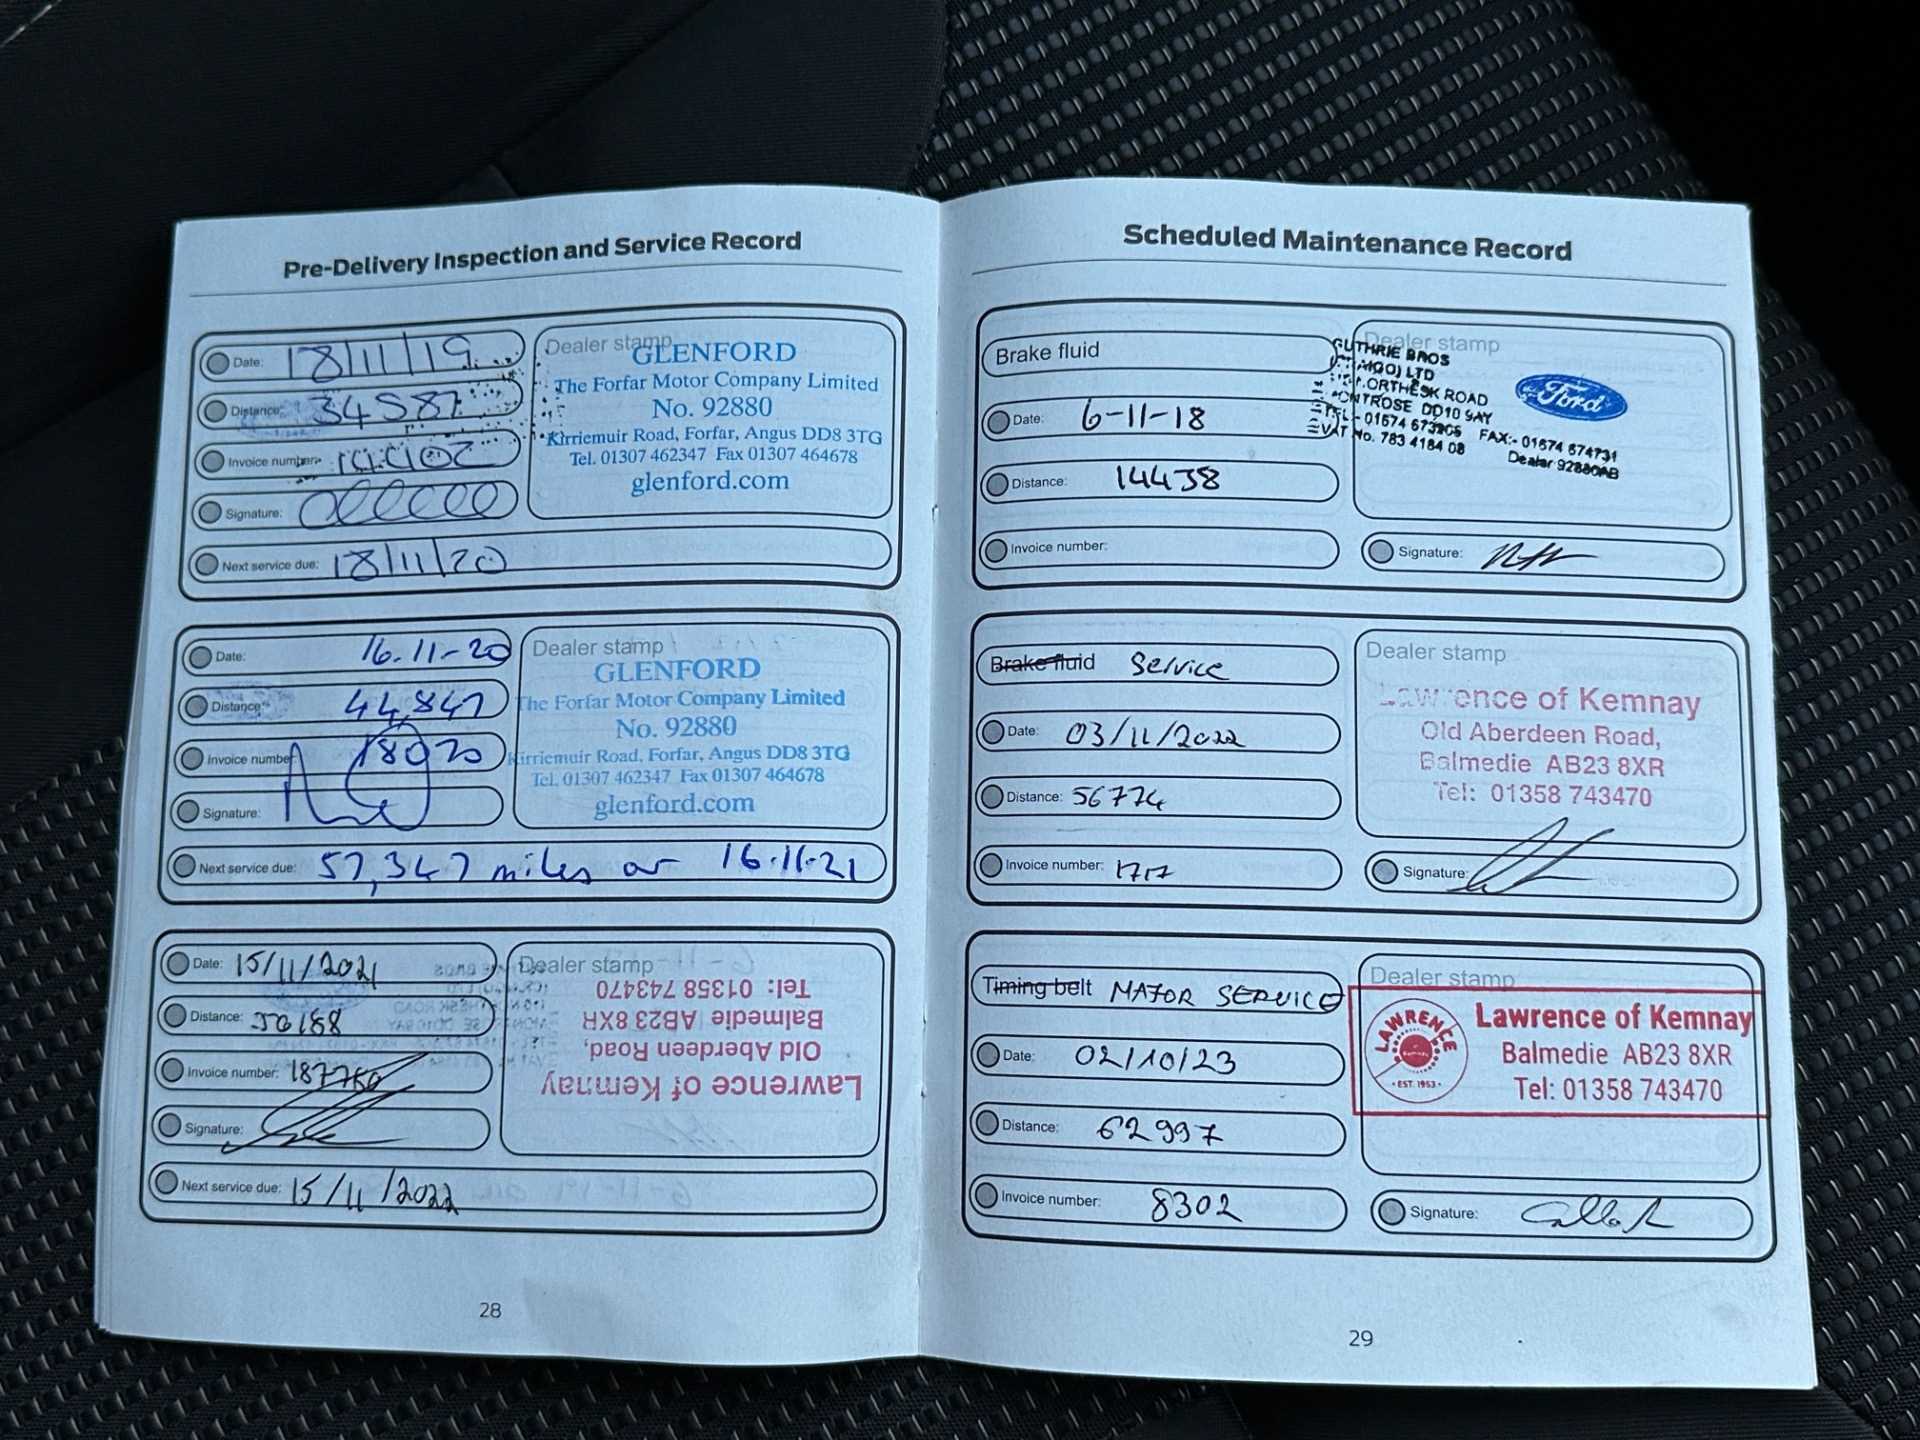 Pre-Delivery Inspection and Service Record
Date: 18/11/19
Distance: 34587
Invoice number:
Signature:
Next service due: 18/11/20
Dealer stamp
GLENFORD
The Forfar Motor Company Limited
No. 92880
Kirriemuir Road, Forfar, Angus DD8 3TG
Tel. 01307 462347 Fax 01307 464678
glenford.com
Date: 16.11-20
Distance: 44,847
Invoice number: 18020
Signature:
Next service due: 57,347 miles or 16.11.21
Dealer stamp
GLENFORD
The Forfar Motor Company Limited
No. 92880
Kirriemuir Road, Forfar, Angus DD8 3TG
Tel. 01307 462347 Fax 01307 464678
glenford.com
Date: 15/11/2021
Distance: 50188
Invoice number: 187760
Signature:
Next service due: 15/11/2022
Dealer stamp
Lawrence of Kemnay
Old Aberdeen Road,
Balmedie AB23 8XR
Tel: 01358 743470
28
Scheduled Maintenance Record
Brake fluid
Date: 6-11-18
Distance: 14438
Invoice number:
Dealer stamp
GUTHRIE BROS
LTD
ROAD
DD10 9AY
FAX:- 01674 674731
VAT No. 783 4184 08
Dealer 92880AB
Ford
Signature:
Brake fluid Service
Date: 03/11/2022
Distance: 56774
Invoice number: 1717
Dealer stamp
Lawrence of Kemnay
Old Aberdeen Road,
Balmedie AB23 8XR
Tel: 01358 743470
Signature:
Timing belt MAJOR SERVICE
Date: 02/10/23
Distance: 62997
Invoice number: 8302
Dealer stamp
LAWRENCE
EST. 1953
Lawrence of Kemnay
Balmedie AB23 8XR
Tel: 01358 743470
Signature:
29